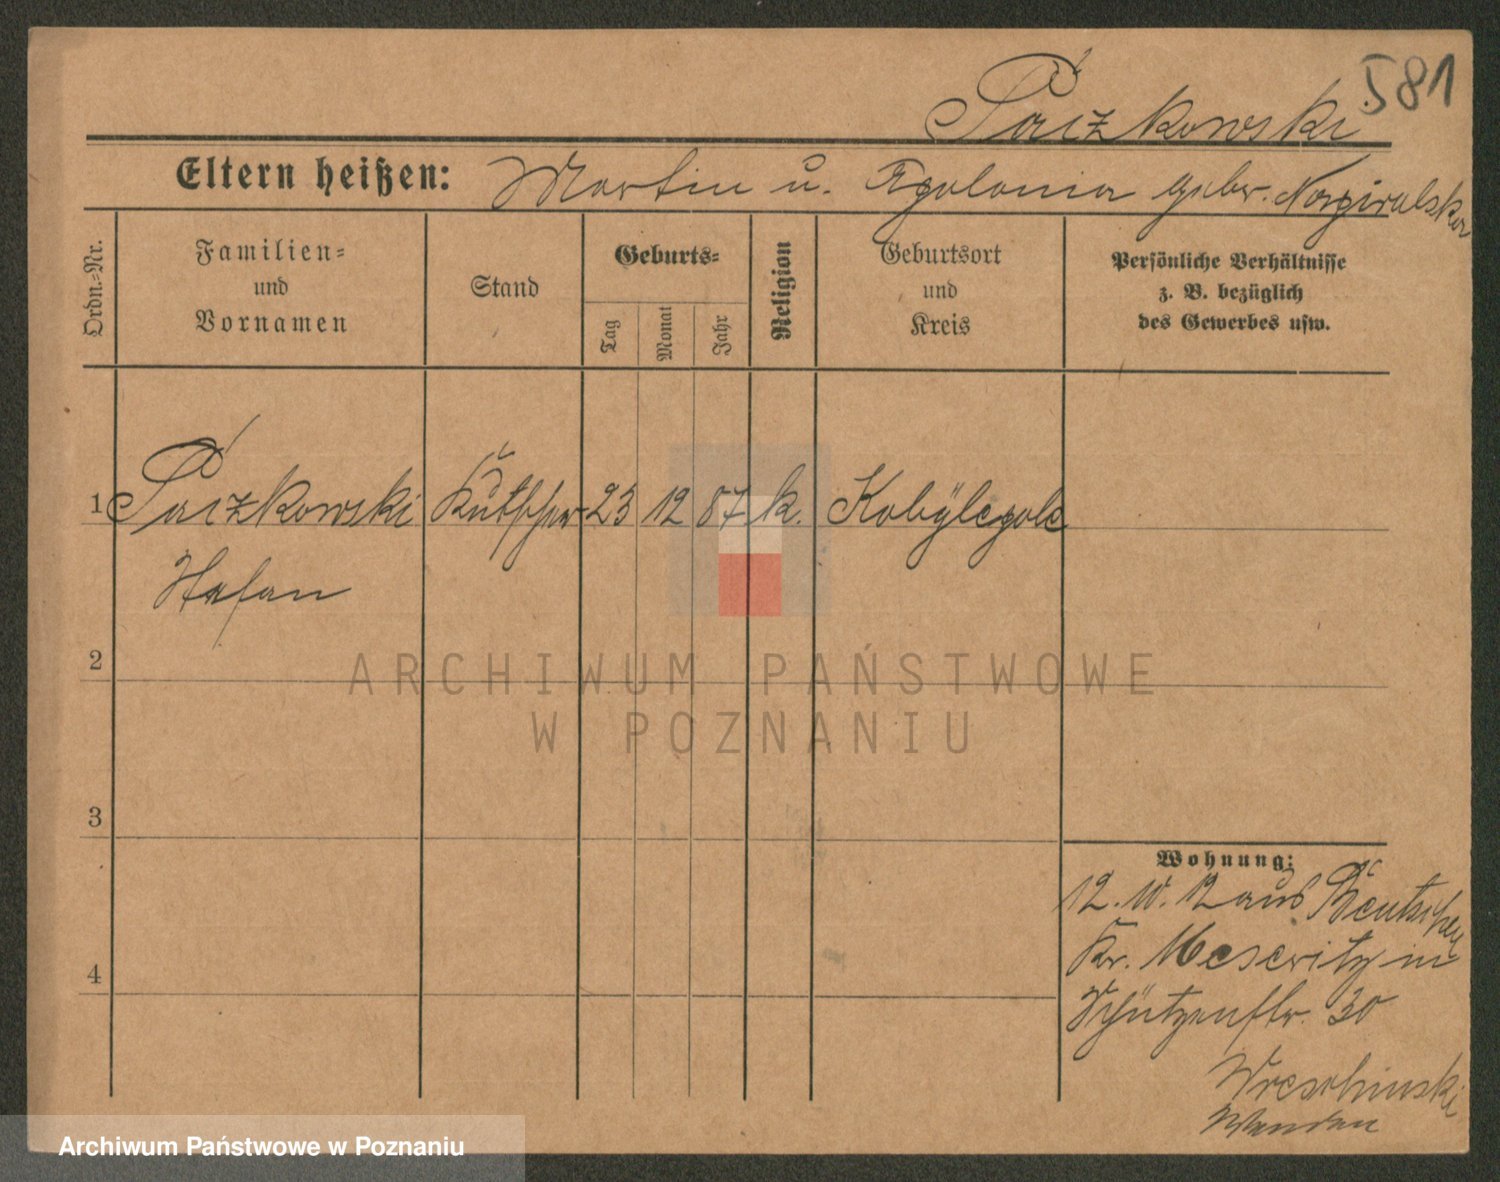 581
Paczkowski
Eltern heißen: Martin u. Apolonia geber.
Ordn.-Nr.
Familien-
und
Vornamen
Stand
Geburts-
Tag
Monat
Jahr
Religion
Geburtsort
und
Kreis
Persönliche Verhältnisse
z. B. bezüglich
des Gewerbes usw.
1 Paczkowski Kutscher 23 12 87 k. Kobylepole
Stefan
2
3
4
Wohnung:
12. 10. 12 aus Bentschen
Kr. Meseritz in
Schützenstr. 30
ARCHIWUM PAŃSTWOWE
W POZNANIU
Archiwum Państwowe w Poznaniu